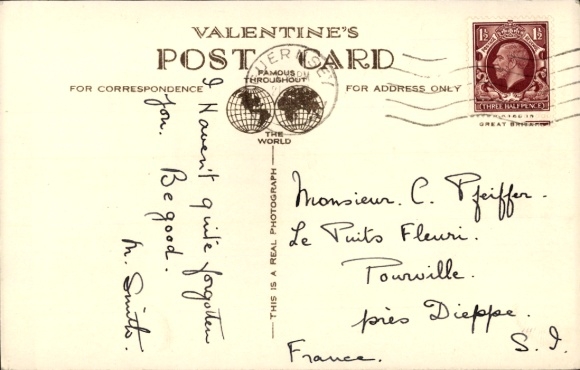 VALENTINE'S
POST CARD
FAMOUS
THROUGHOUT
THE
WORLD
FOR CORRESPONDENCE
FOR ADDRESS ONLY
THIS IS A REAL PHOTOGRAPH
GUERNSEY
1½ 1½
POSTAGE REVENUE
THREE HALFPENCE
GREAT BRITAIN
I Haven't quite forgotten
you. Be good.
M. Smith.
Monsieur. C. Pfeiffer.
Le Puits Fleuri.
Pourville.
près Dieppe.
France.
S. I.